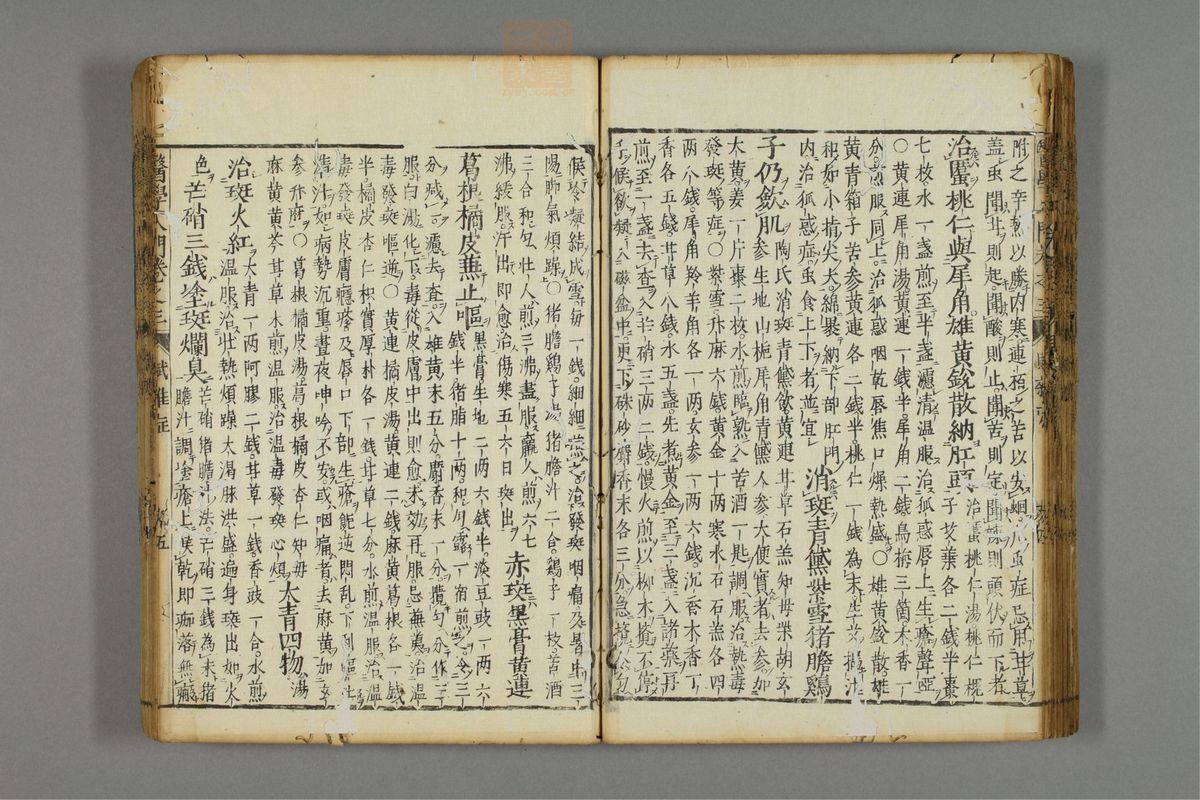 附之辛熱以勝內寒連栢之苦以安蛔凡虫症忌用甘草
蓋虫聞甘則起聞酸則止聞苦則定聞辣則頭伏而下者
治䘌桃仁與犀角雄黃銳散納肛頭 治䘌桃仁湯桃仁槐
子艾葉各二錢半棗
七枚水一盞煎至半盞濾清溫服治狐惑唇上生瘡聲啞
○黃連犀角湯黃連一錢半犀角二錢烏梅三箇木香一
分煎服同上治狐惑咽乾唇焦口燥熱盛○雄黃銳散雄
黃青箱子苦參黃連各二錢半桃仁一錢為末生艾搗汁
和如小指尖大綿裹納下部肛門
內治狐惑症虫食上下者並宜 消斑青黛紫雪猪膽鷄
子仍斂肌 陶氏消斑青黛飲黃連甘草石羔知母柴胡玄
參生地山梔犀角青黛人參大便實者去參加
大黃姜一片棗二枚水煎臨熟入苦酒一匙調服治熱毒
發斑等症○紫雪升麻六錢黃金十兩寒水石石羔各四
兩八錢犀角羚羊角各一兩玄參一兩六錢沉香木香丁
香各五錢甘草八錢水五盞先煮黃金至三盞入諸藥再
煎至一盞去查入芒硝三兩二錢慢火煎以柳木攪不停
手候欲凝入磁盆中更下硃砂麝香末各三分急攪令勻
候冷凝結成雪每一錢細細嚥之治發斑咽痛及暑中三
陽脚氣煩躁○猪膽鷄子湯猪膽汁二合鷄子一枚苦酒
三合和勻壯人煎三沸盡服羸人煎六七
沸緩服汗出即愈治傷寒五六日斑出 赤斑黑膏黃連
葛根橘皮兼止嘔 黑膏生地二兩六錢半淡豆豉一兩六
錢半猪脂十兩和勻露一宿煎令三
分減一濾去查入雄黃末五分麝香末一分攪勻分作三
服白湯化下毒從皮膚中出則愈未効再服忌蕪荑治溫
毒發斑嘔逆○黃連橘皮湯黃連二錢麻黃葛根各一錢
半橘皮杏仁枳實厚朴各一錢甘草七分水煎溫服治溫
毒發斑皮膚癮疹及唇口下部生瘡能逆悶亂下利嘔吐
清汁如病勢沉重晝夜呻吟不安或咽痛者去麻黃加玄
參升麻○葛根橘皮湯葛根橘皮杏仁知母
麻黃黃芩甘草水煎溫服治溫毒發斑心煩 大青四物湯
治斑火紅 大青一兩阿膠二錢甘草一錢香豉一合水煎
溫服治壯熱煩躁大渴脉洪盛遍身斑出如火
色 芒硝三錢塗斑爛臭 芒硝猪膽汁法芒硝三錢為末猪
膽汁調塗瘡上候乾即痂落無瘢
醫學入門卷之三